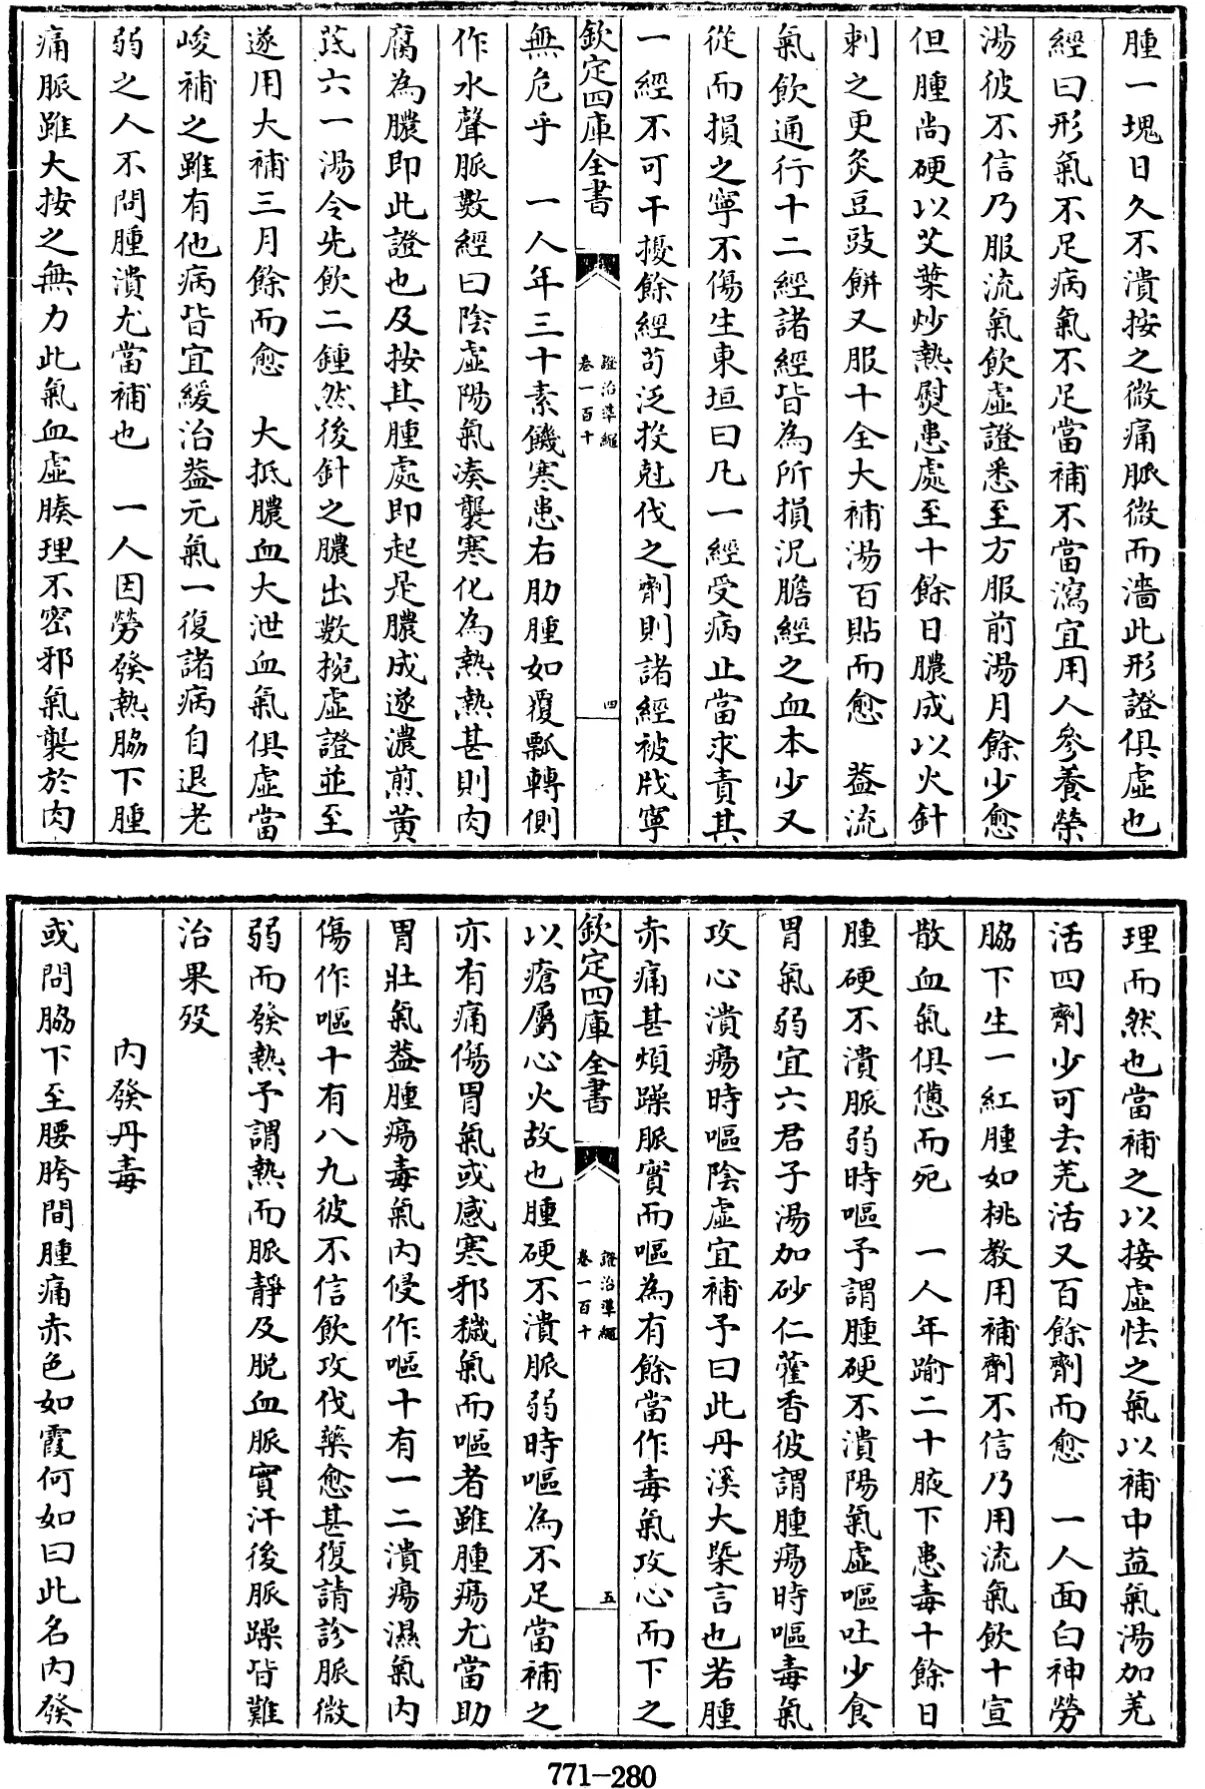 腫一塊日久不潰按之微痛脈微而濇此形證俱虛也
經曰形氣不足病氣不足當補不當瀉宜用人參養榮
湯彼不信乃服流氣飲虛證悉至方服前湯月餘少愈
但腫尚硬以艾葉炒熱熨患處至十餘日膿成以火針
刺之更灸豆豉餅又服十全大補湯百貼而愈　葢流
氣飲通行十二經諸經皆為所損况膽經之血本少又
從而損之寧不傷生東垣曰凡一經受病止當求責其
一經不可干擾餘經苟泛投尅伐之劑則諸經被戕寧
欽定四庫全書
證治準繩
卷一百十
四
無危乎　一人年三十素饑寒患右肋腫如覆瓢轉側
作水聲脈數經曰陰虛陽氣湊襲寒化為熱熱甚則肉
腐為膿即此證也及按其腫處即起是膿成遂濃煎黄
芪六一湯令先飲二鍾然後針之膿出數椀虛證並至
遂用大補三月餘而愈　大抵膿血大泄血氣俱虛當
峻補之雖有他病皆宜緩治葢元氣一復諸病自退老
弱之人不問腫潰尤當補也　一人因勞發熱脇下腫
痛脈雖大按之無力此氣血虛腠理不密邪氣襲於肉
理而然也當補之以接虛怯之氣以補中益氣湯加羌
活四劑少可去羌活又百餘劑而愈　一人面白神勞
脇下生一紅腫如桃教用補劑不信乃用流氣飲十宣
散血氣俱憊而死　一人年踰二十腋下患毒十餘日
腫硬不潰脈弱時嘔予謂腫硬不潰陽氣虛嘔吐少食
胃氣弱宜六君子湯加砂仁藿香彼謂腫瘍時嘔毒氣
攻心潰瘍時嘔陰虛宜補予曰此丹溪大槩言也若腫
赤痛甚煩躁脈實而嘔為有餘當作毒氣攻心而下之
欽定四庫全書
證治準繩
卷一百十
五
以瘡屬心火故也腫硬不潰脈弱時嘔為不足當補之
亦有痛傷胃氣或感寒邪穢氣而嘔者雖腫瘍尤當助
胃壯氣葢腫瘍毒氣内侵作嘔十有一二潰瘍濕氣内
傷作嘔十有八九彼不信飲攻伐藥愈甚復請診脈微
弱而發熱予謂熱而脈靜及脱血脈實汗後脈躁皆難
治果殁
内發丹毒
或問脇下至腰胯間腫痛赤色如霞何如曰此名内發
771-280